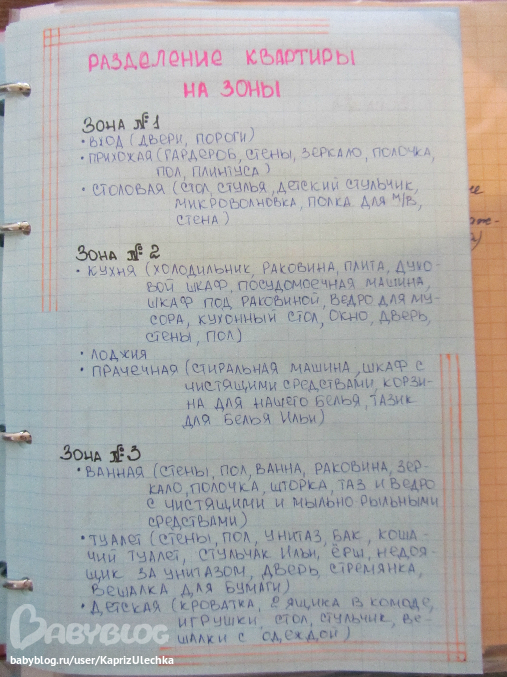 РАЗДЕЛЕНИЕ КВАРТИРЫ
НА ЗОНЫ
ЗОНА №1
• ВХОД (ДВЕРИ, ПОРОГИ)
• ПРИХОЖАЯ (ГАРДЕРОБ, СТЕНЫ, ЗЕРКАЛО, ПОЛОЧКА,
ПОЛ, ПЛИНТУСА)
• СТОЛОВАЯ (СТОЛ, СТУЛЬЯ, ДЕТСКИЙ СТУЛЬЧИК,
МИКРОВОЛНОВКА, ПОЛКА ДЛЯ М/В,
СТЕНА)
ЗОНА № 2
• КУХНЯ (ХОЛОДИЛЬНИК, РАКОВИНА, ПЛИТА, ДУХО-
ВОЙ ШКАФ, ПОСУДОМОЕЧНАЯ МАШИНА,
ШКАФ ПОД РАКОВИНОЙ, ВЕДРО ДЛЯ МУ-
СОРА, КУХОННЫЙ СТОЛ, ОКНО, ДВЕРЬ,
СТЕНЫ, ПОЛ)
• ЛОДЖИЯ
• ПРАЧЕЧНАЯ (СТИРАЛЬНАЯ МАШИНА, ШКАФ С
ЧИСТЯЩИМИ СРЕДСТВАМИ, КОРЗИ-
НА ДЛЯ НАШЕГО БЕЛЬЯ, ТАЗИК
ДЛЯ БЕЛЬЯ ИЛЬИ)
ЗОНА №3
• ВАННАЯ (СТЕНЫ, ПОЛ, ВАННА, РАКОВИНА, ЗЕР-
КАЛО, ПОЛОЧКА, ШТОРКА, ТАЗ И ВЕДРО
С ЧИСТЯЩИМИ И МЫЛЬНО-РЫЛЬНЫМИ
СРЕДСТВАМИ)
• ТУАЛЕТ (СТЕНЫ, ПОЛ, УНИТАЗ, БАК, КОША-
ЧИЙ ТУАЛЕТ, СТУЛЬЧАК ИЛЬИ, ЁРШ, НЕДОЯ-
ЩИК ЗА УНИТАЗОМ, ДВЕРЬ, СТРЕМЯНКА,
ВЕШАЛКА ДЛЯ БУМАГИ)
• ДЕТСКАЯ (КРОВАТКА, 2 ЯЩИКА В КОМОДЕ,
ИГРУШКИ, СТОЛ, СТУЛЬЧИК, ВЕ-
ШАЛКИ С ОДЕЖДОЙ)
BABYBLOG
babyblog.ru/user/KaprizUlechka